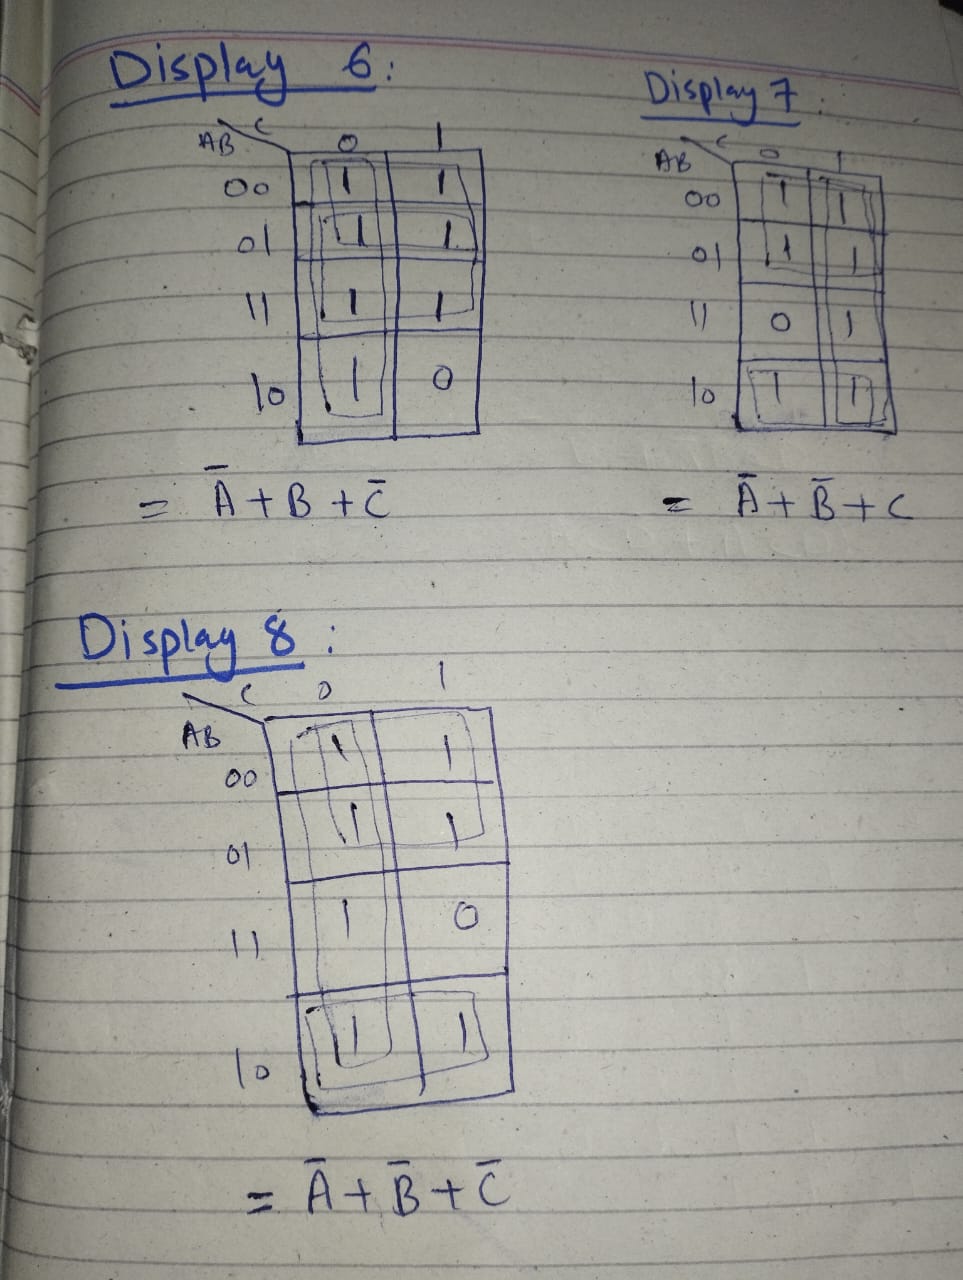 Display 6:
C
AB 0 1
00 1 1
01 1 1
11 1 1
10 1 0
= A̅ + B + C̅
Display 7:
C
AB 0 1
00 1 1
01 1 1
11 0 1
10 1 1
= A̅ + B̅ + C
Display 8:
C 0 1
AB
00 1 1
01 1 1
11 1 0
10 1 1
= A̅ + B̅ + C̅